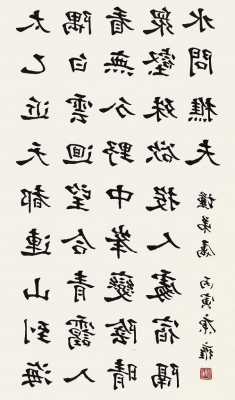 太乙近天都連山到海
隅白雲迴望合青靄入
看無分野中峯變陰晴
衆壑殊欲投人處宿隔
水問樵夫
弟屬 丙寅